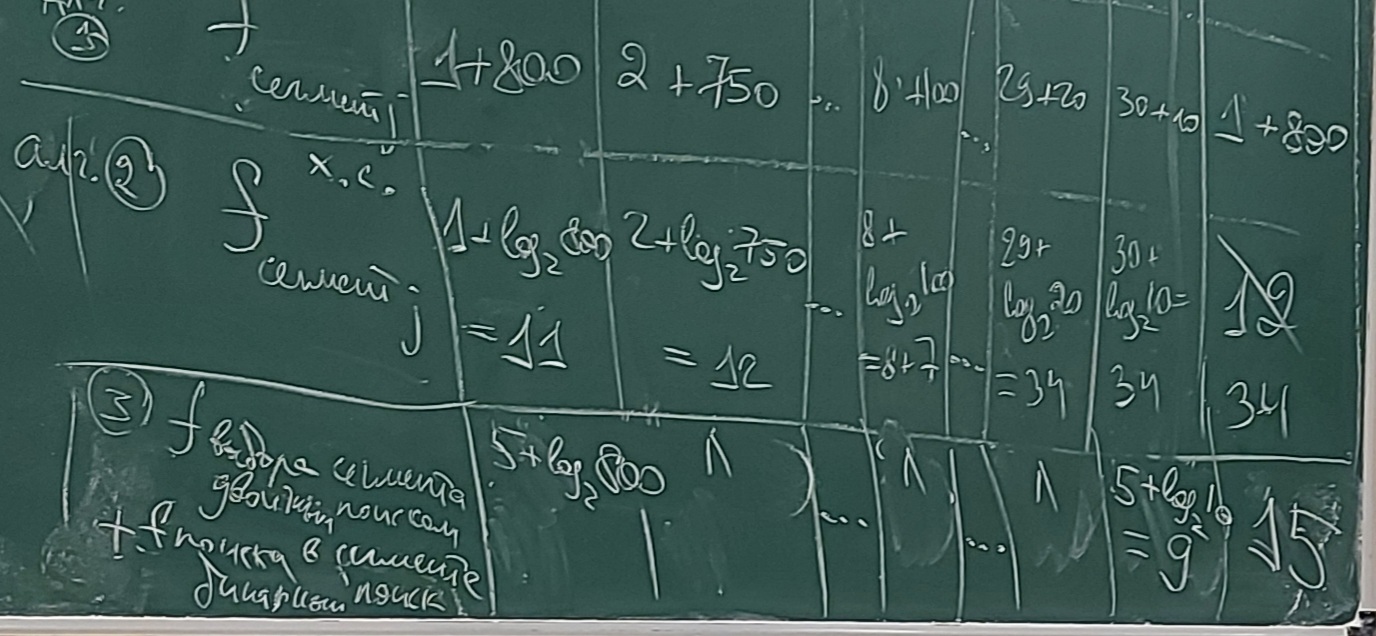 ①
f
сегмент j
1+800
2+750
...
8+100
...
29+20
30+10
1+800
алг. ②
f х.с.
сегмент j
1+log₂800
=11
2+log₂750
=12
...
8+
log₂100
=8+7
...
29+
log₂20
=34
30+
log₂10=
34
12
34
③ f выбора сегмента
двоичным поиском
+ f поиска в сегменте
бинарный поиск
5+log₂800
...
...
5+log₂10
=9
15